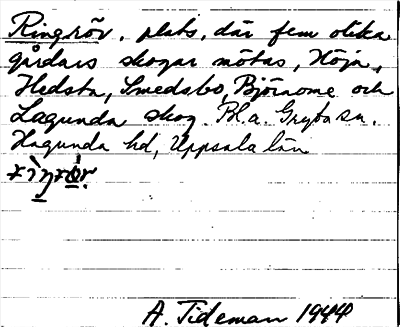 Ringrör, plats, där fem olika
gårdars skogar mötas, Höja,
Hedsta, Smedsbo, Björnome och
Lagunda skog. Bl.a. Gryta sn.
Hagunda hd, Uppsala län

A. Tideman 1944